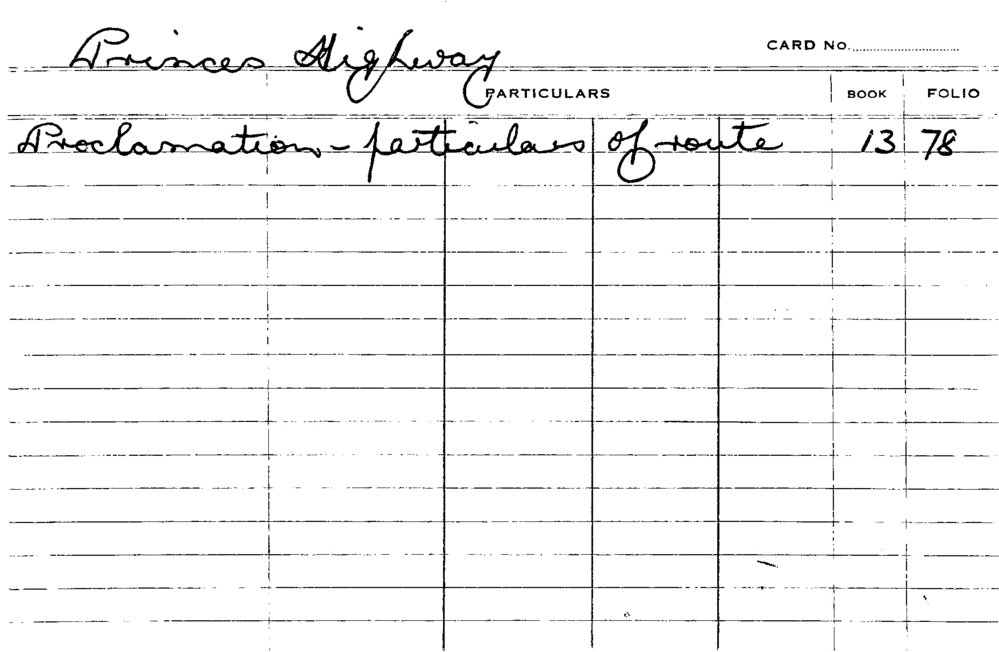 Princes Highway CARD No.
PARTICULARS BOOK FOLIO
Proclamation - particulars of route 13 78